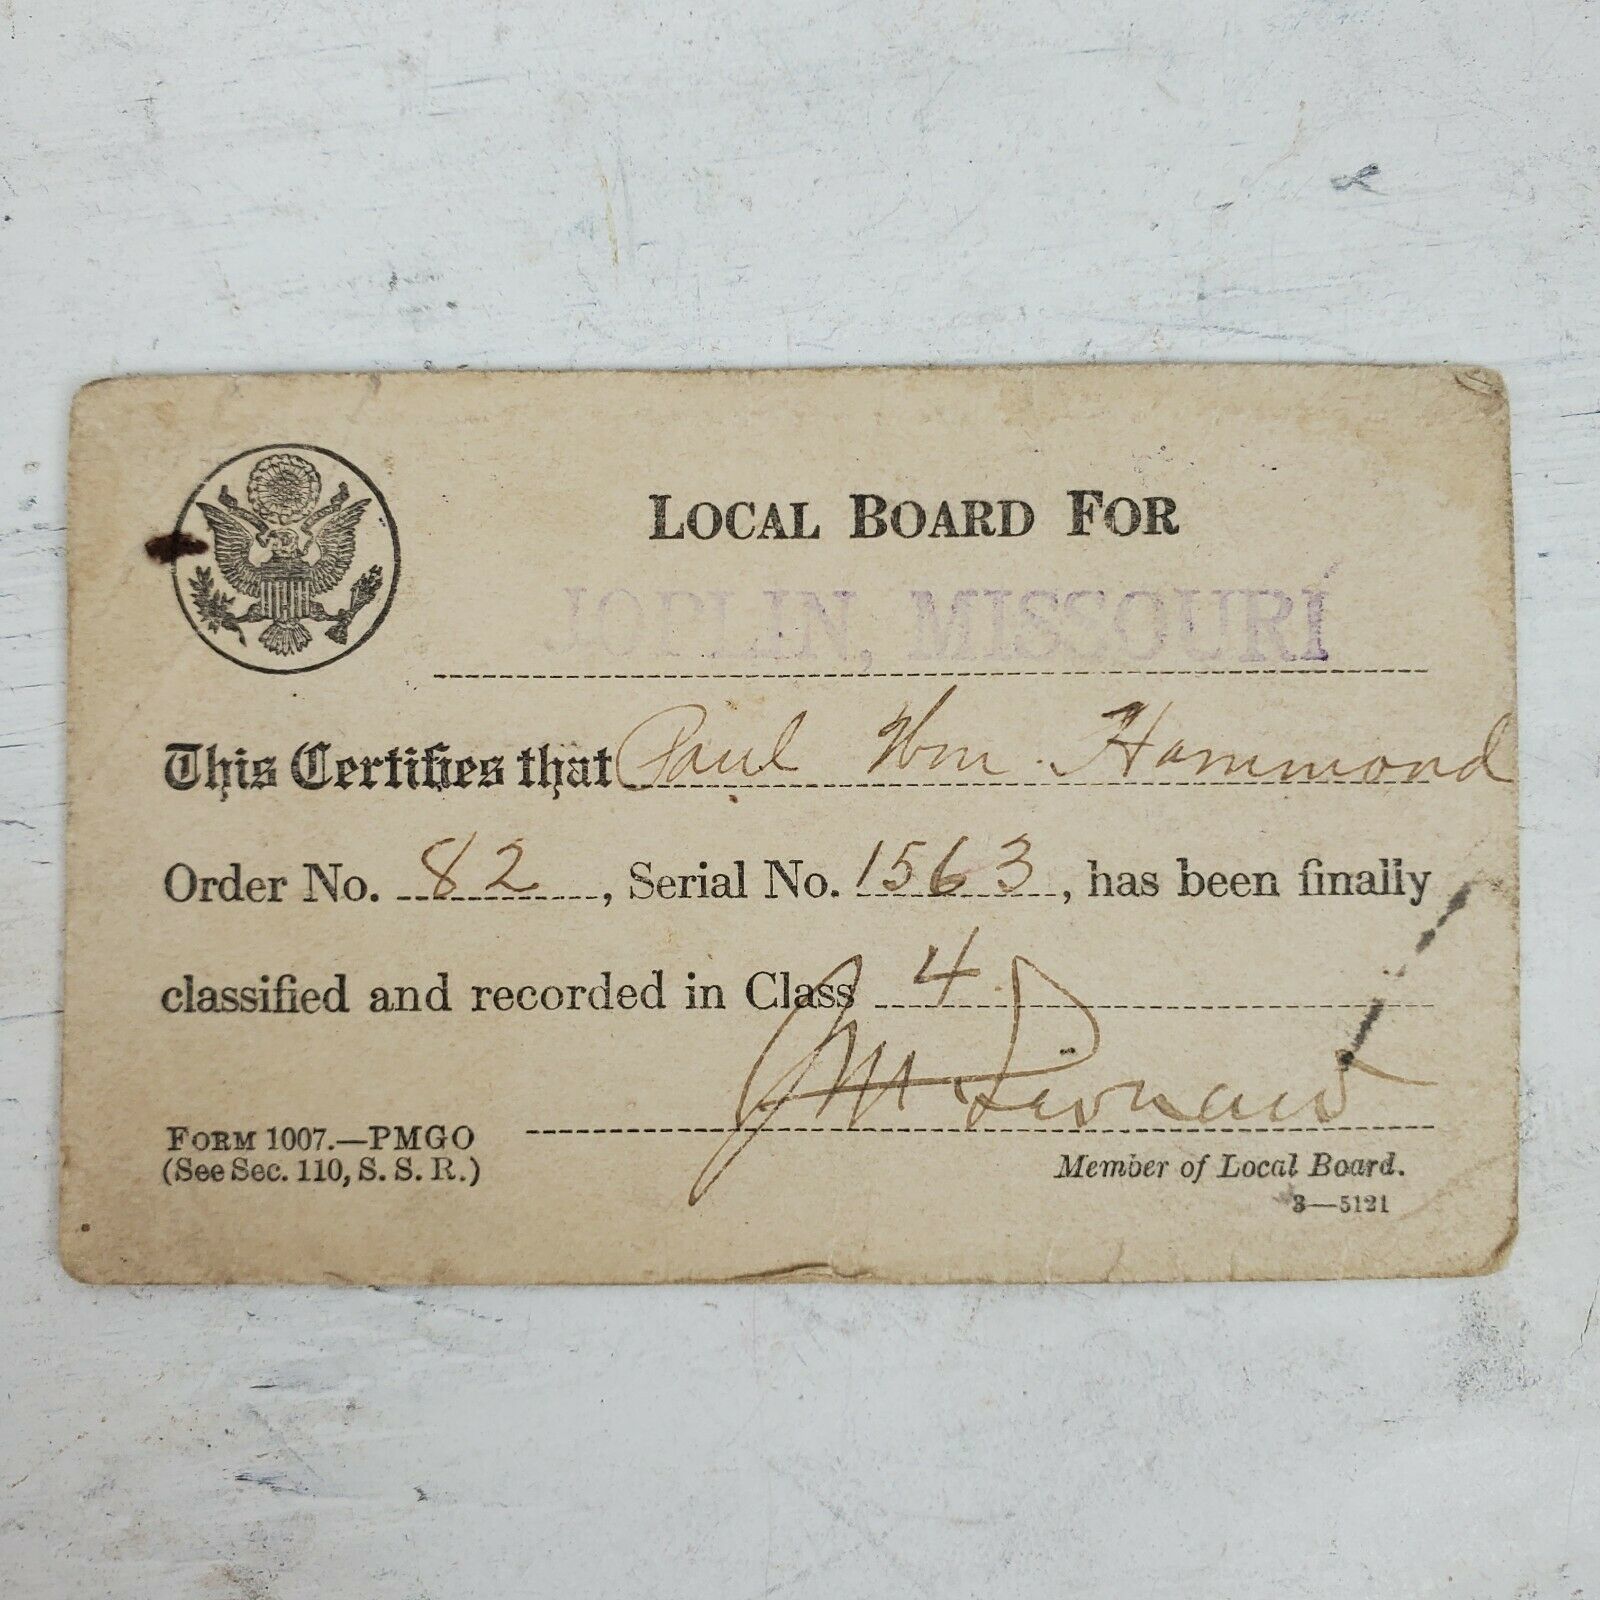 LOCAL BOARD FOR
JOPLIN, MISSOURI
This Certifies that Paul Wm. Hammond
Order No. 82, Serial No. 1563, has been finally
classified and recorded in Class 4
FORM 1007.—PMGO
(See Sec. 110, S. S. R.)
Member of Local Board.
3—5121